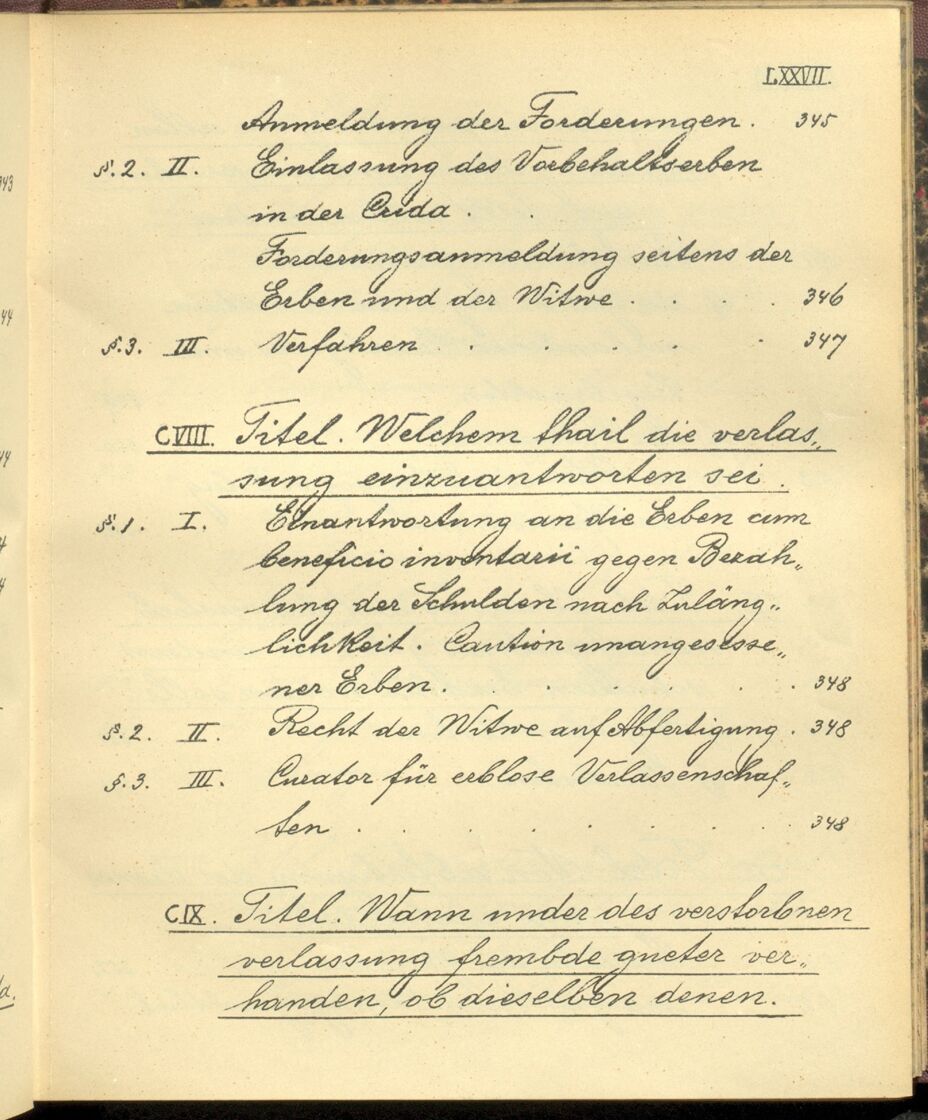 LXXVII.
Anmeldung der Forderungen. 345
§.2. II. Einlassung des Vorbehaltserben
in der Crida . .
Forderungsanmeldung seitens der
Erben und der Witwe . . . . 346
§.3. III. Verfahren . . . . . 347
CVIII. Titel. Welchem thail die verlas„
sung einzuantworten sei.
§.1. I. Einantwortung an die Erben cum
beneficio inventarii gegen Bezah„
lung der Schulden nach Zuläng„
lichkeit. Caution unangesesse„
ner Erben. . . 348
§.2. II. Recht der Witwe auf Abfertigung. 348
§.3. III. Curator für erblose Verlassenschaf„
ten . . . . . . . 348
CIX. Titel. Wann under des verstorbnen
verlassung frembde gueter ver„
handen, ob dieselben denen.
343
44
44
4
4
da.